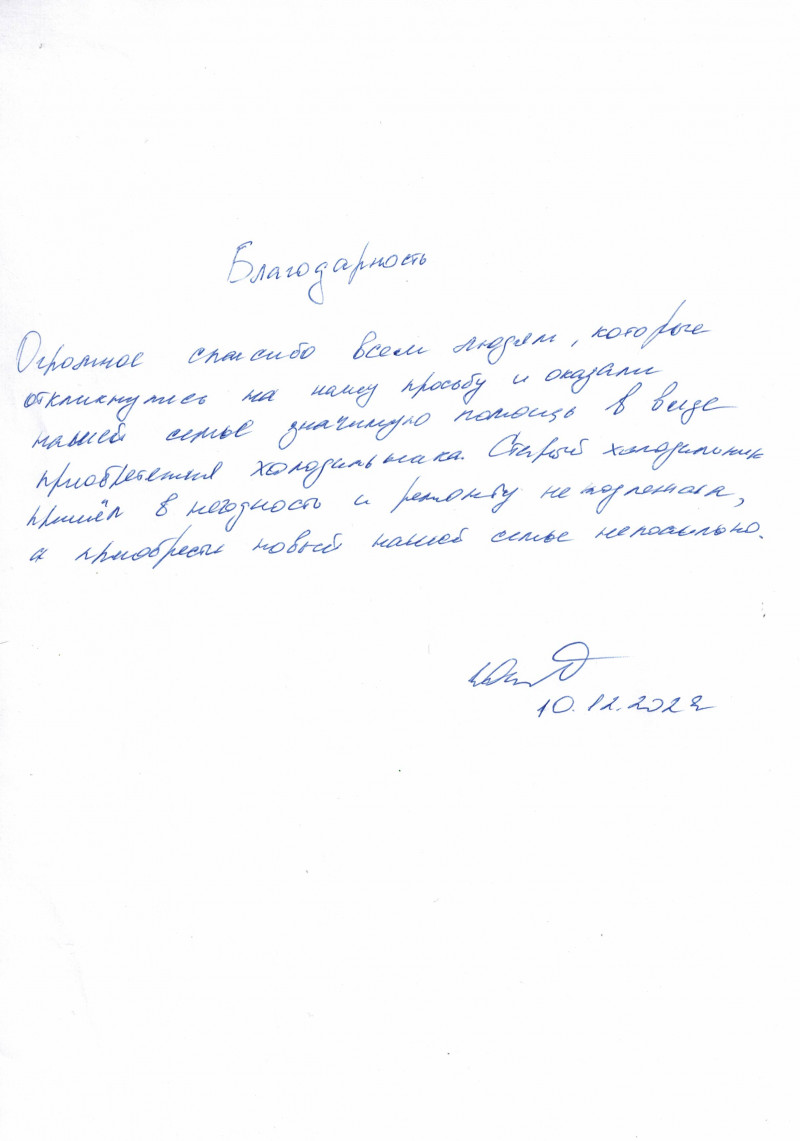 Благодарность
Огромное спасибо всем людям, которые
откликнулись на нашу просьбу и оказали
нашей семье значимую помощь в виде
приобретения холодильника. Старый холодильник
пришёл в негодность и ремонту не подлежал,
а приобрести новый нашей семье непосильно.
10.12.2022